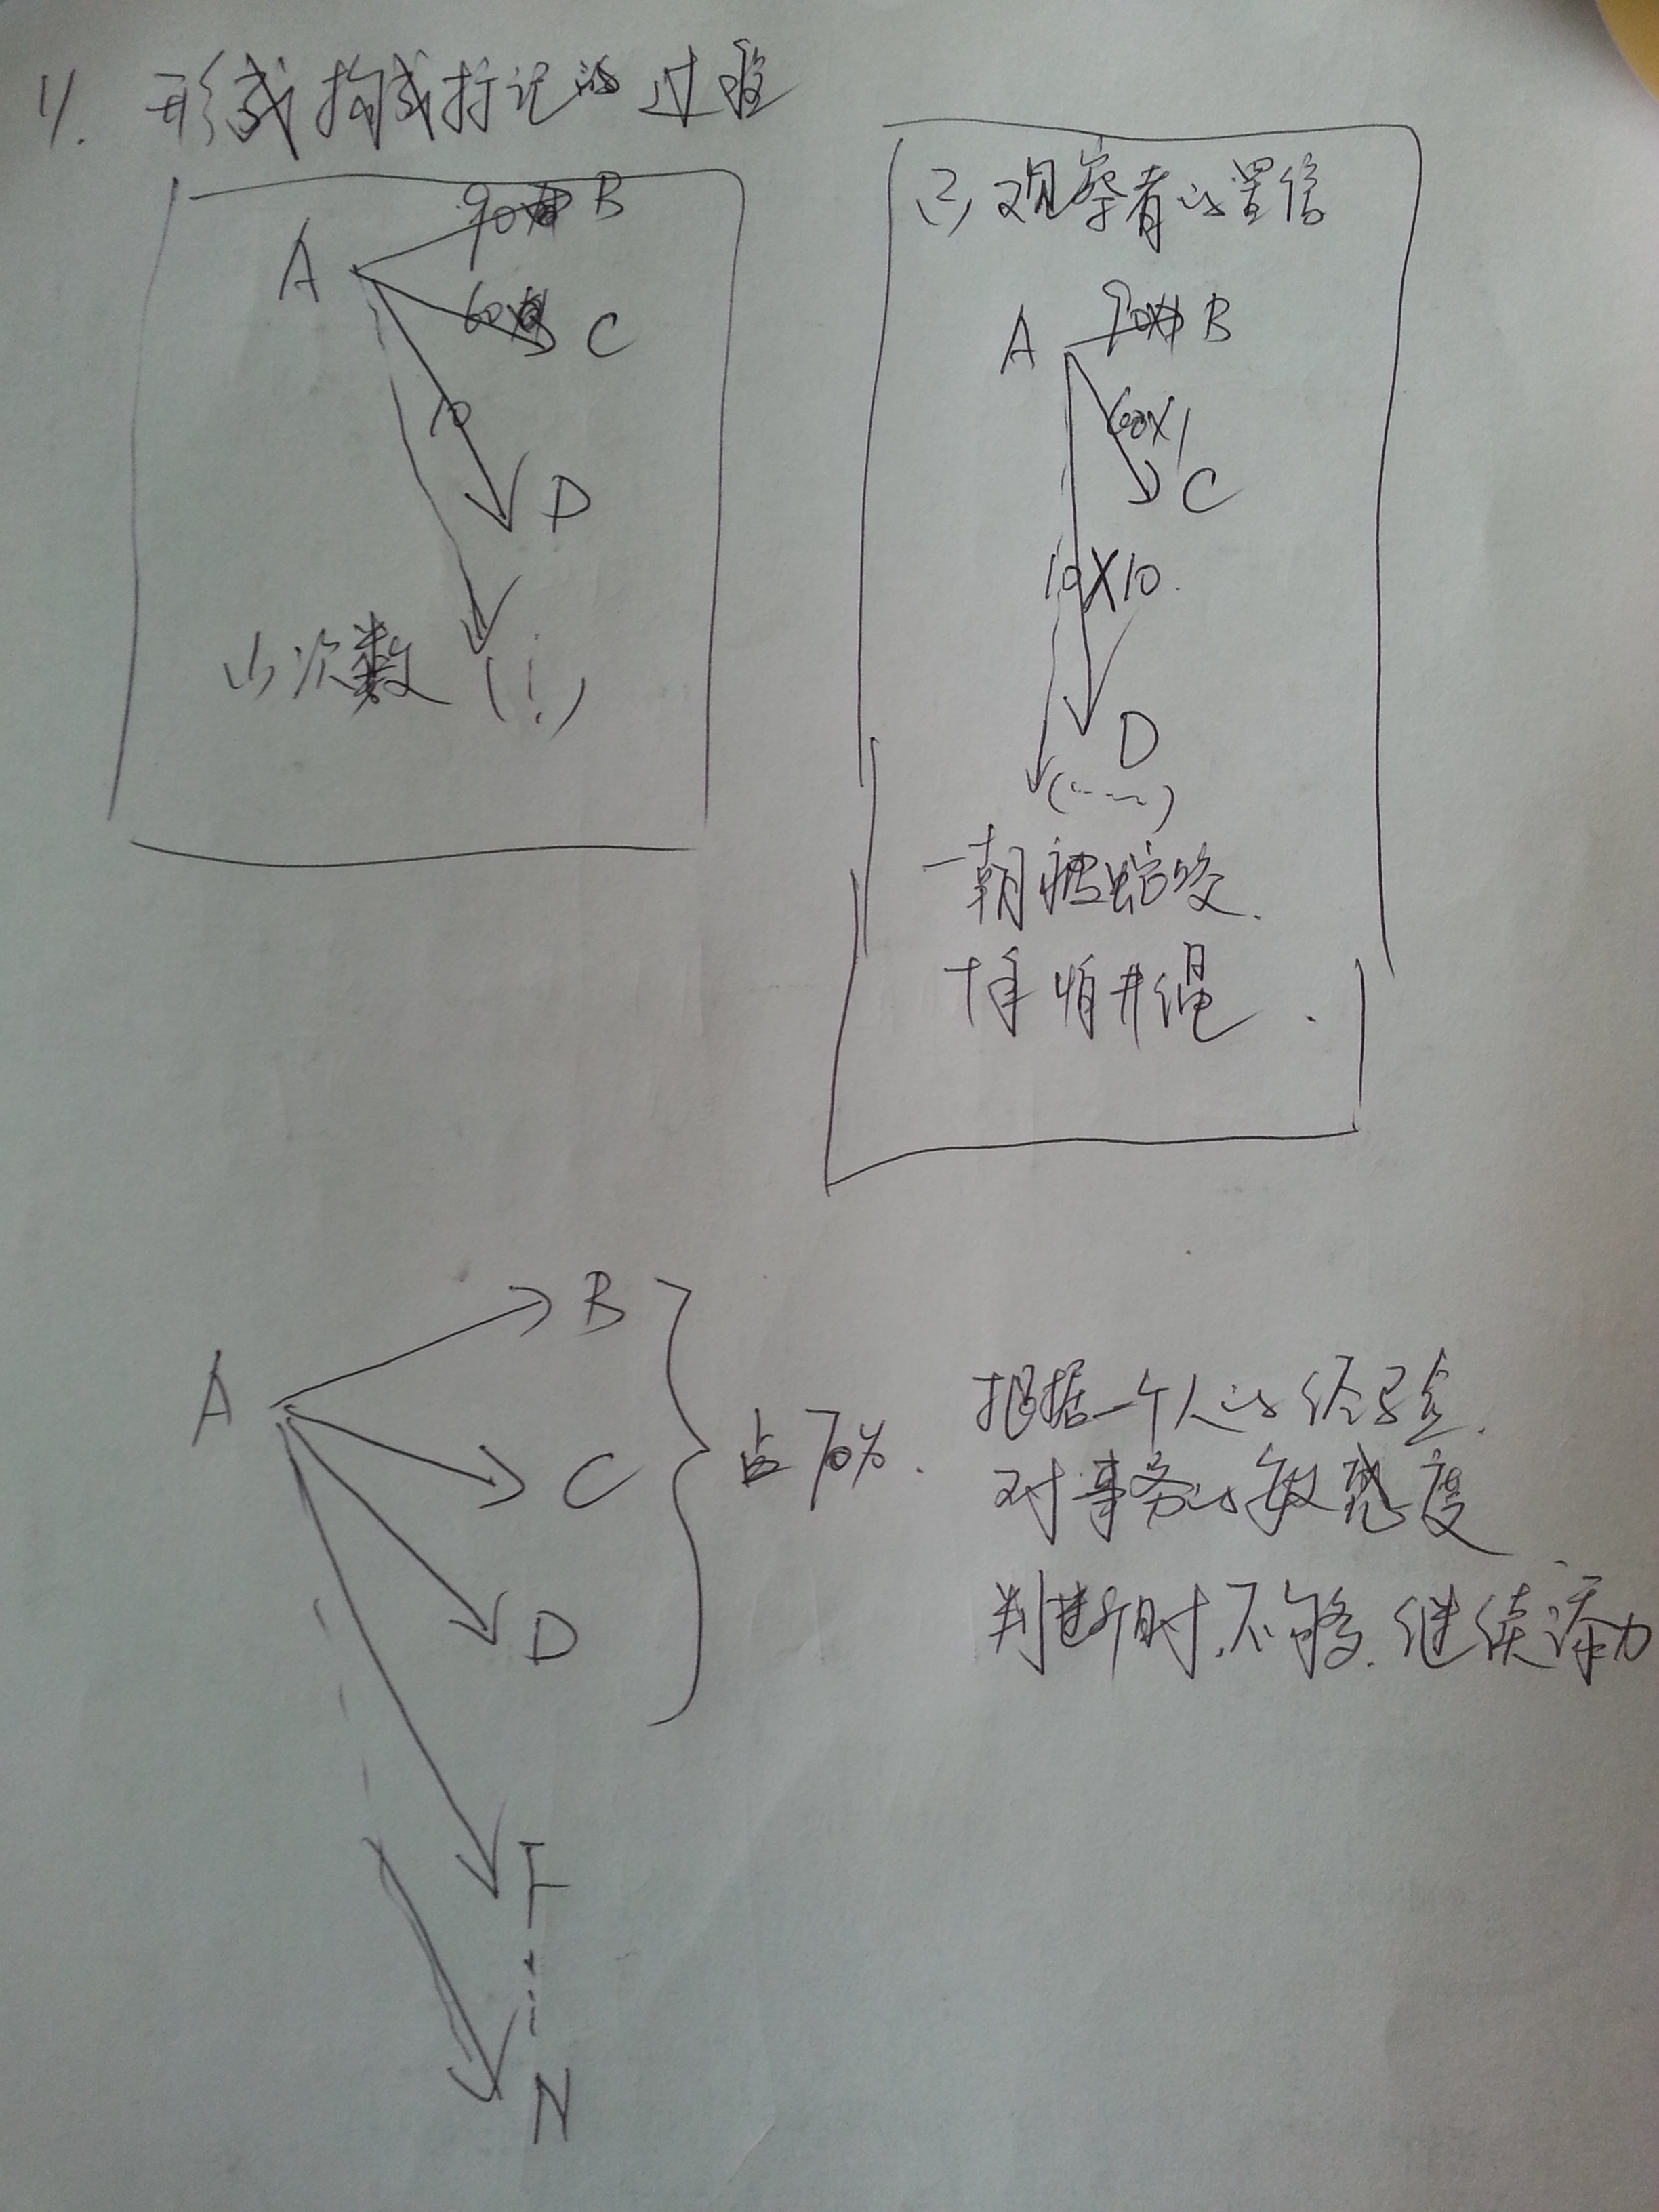 1. 形成构成标记的过程
A
B
C
10
D
(1) 次数 (⋮)
(2) 观察者的置信
A
90×1 B
60×1
C
10×10
D
(……)
一朝被蛇咬.
十年怕井绳.
A
B
C
D
F
N
占70%.
根据一个人的经验.
对事务的敏感度
判断时,不够,继续添加